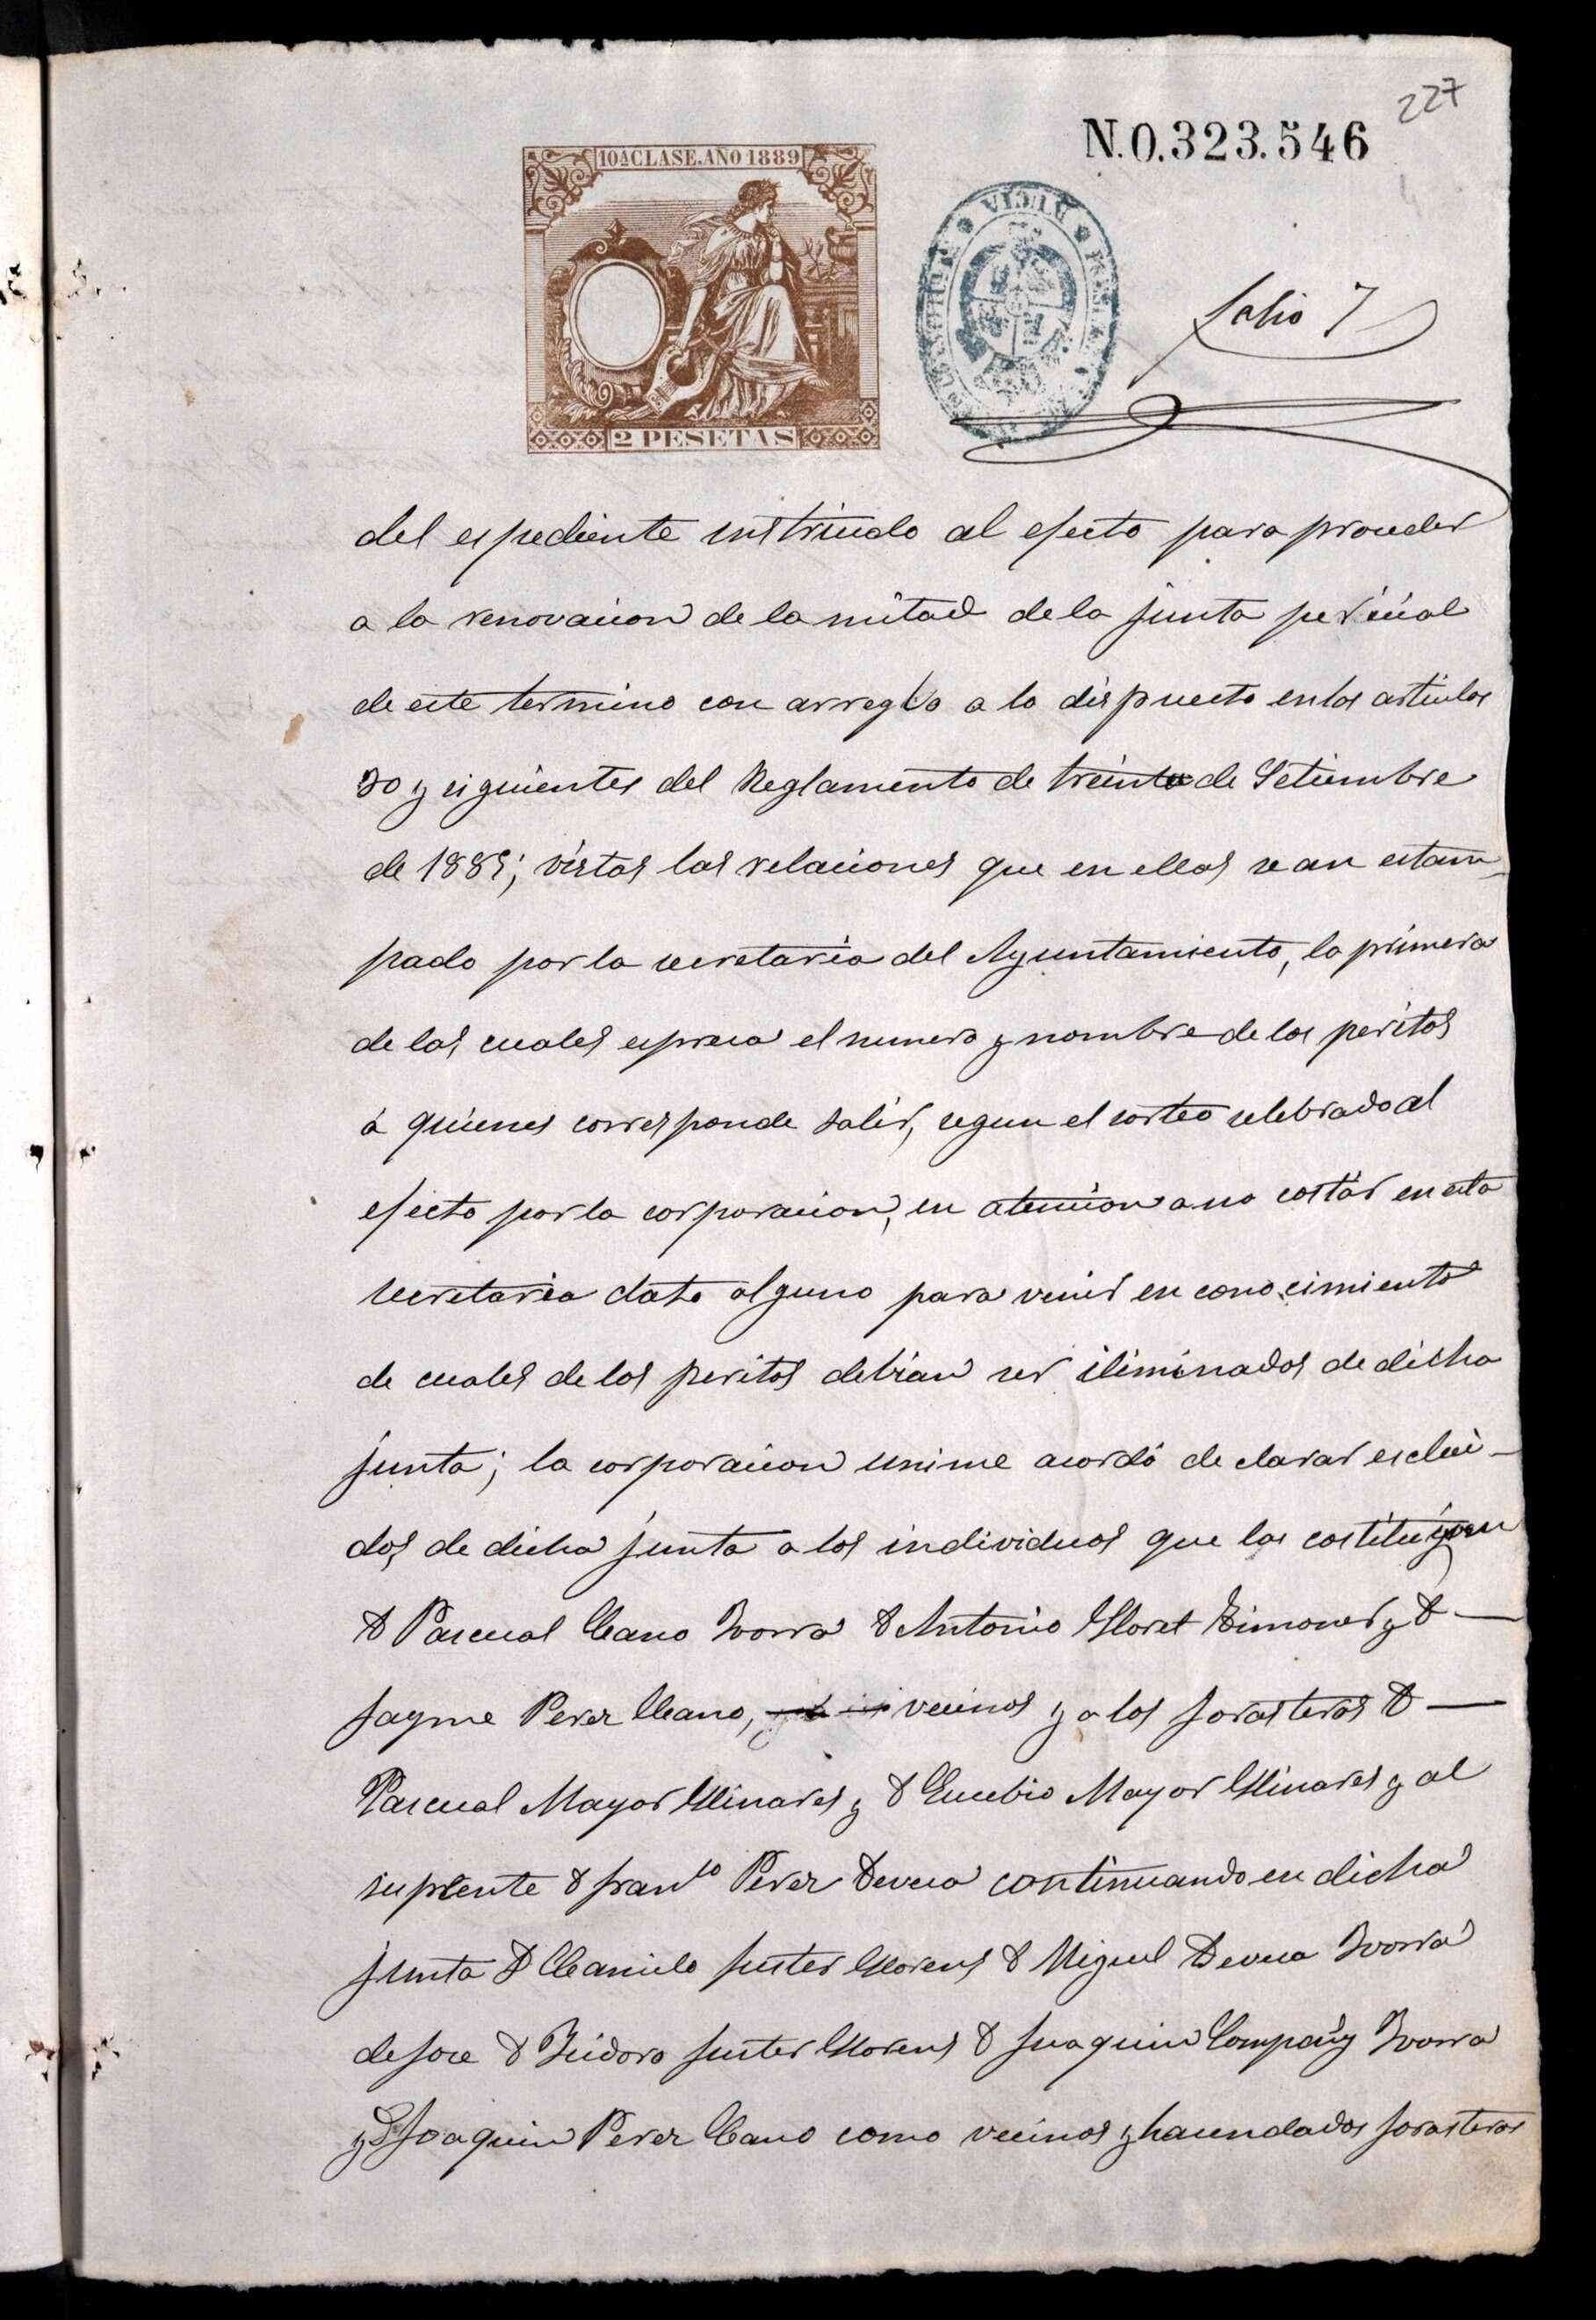 227
N.0.323.546
10.ª CLASE. AÑO 1889
2 PESETAS
folio 7
del espediente instruido al efecto para proceder
a la renovacion de la mitad de la junta pericial
de este termino con arreglo a lo dispuesto en los articulos
30 y siguientes del Reglamento de treinta de Setiembre
de 1885; vistas las relaciones que en ellas se an estam
pado por la secretaria del Ayuntamiento, la primera
de las cuales espresa el numero y nombre de los peritos
á quienes corresponde salir, segun el sorteo celebrado al
efecto por la corporacion, en atencion a no costar en esta
secretaria dato alguno para venir en conocimiento
de cuales de los peritos debian ser iliminados de dicha
junta; la corporacion unime acordó declarar esclui-
dos de dicha junta a los individuos que las costituyen
D Pascual Cano Ivorra D Antonio Lloret Ximenes y D
Jayme Perez Cano, vecinos y a los forasteros D
Pascual Mayor Llinares y D Eusebio Mayor Llinares y al
suplente D Fran.co Perez Devesa continuando en dicha
junta D Camilo Fuster Llorens D Miguel Devesa Ivorra
de Jose D Isidoro Fuster Llorens D Juaquin Compañy Ivorra
y D Joaquin Perez Cano como vecinos y hacendados forasteros